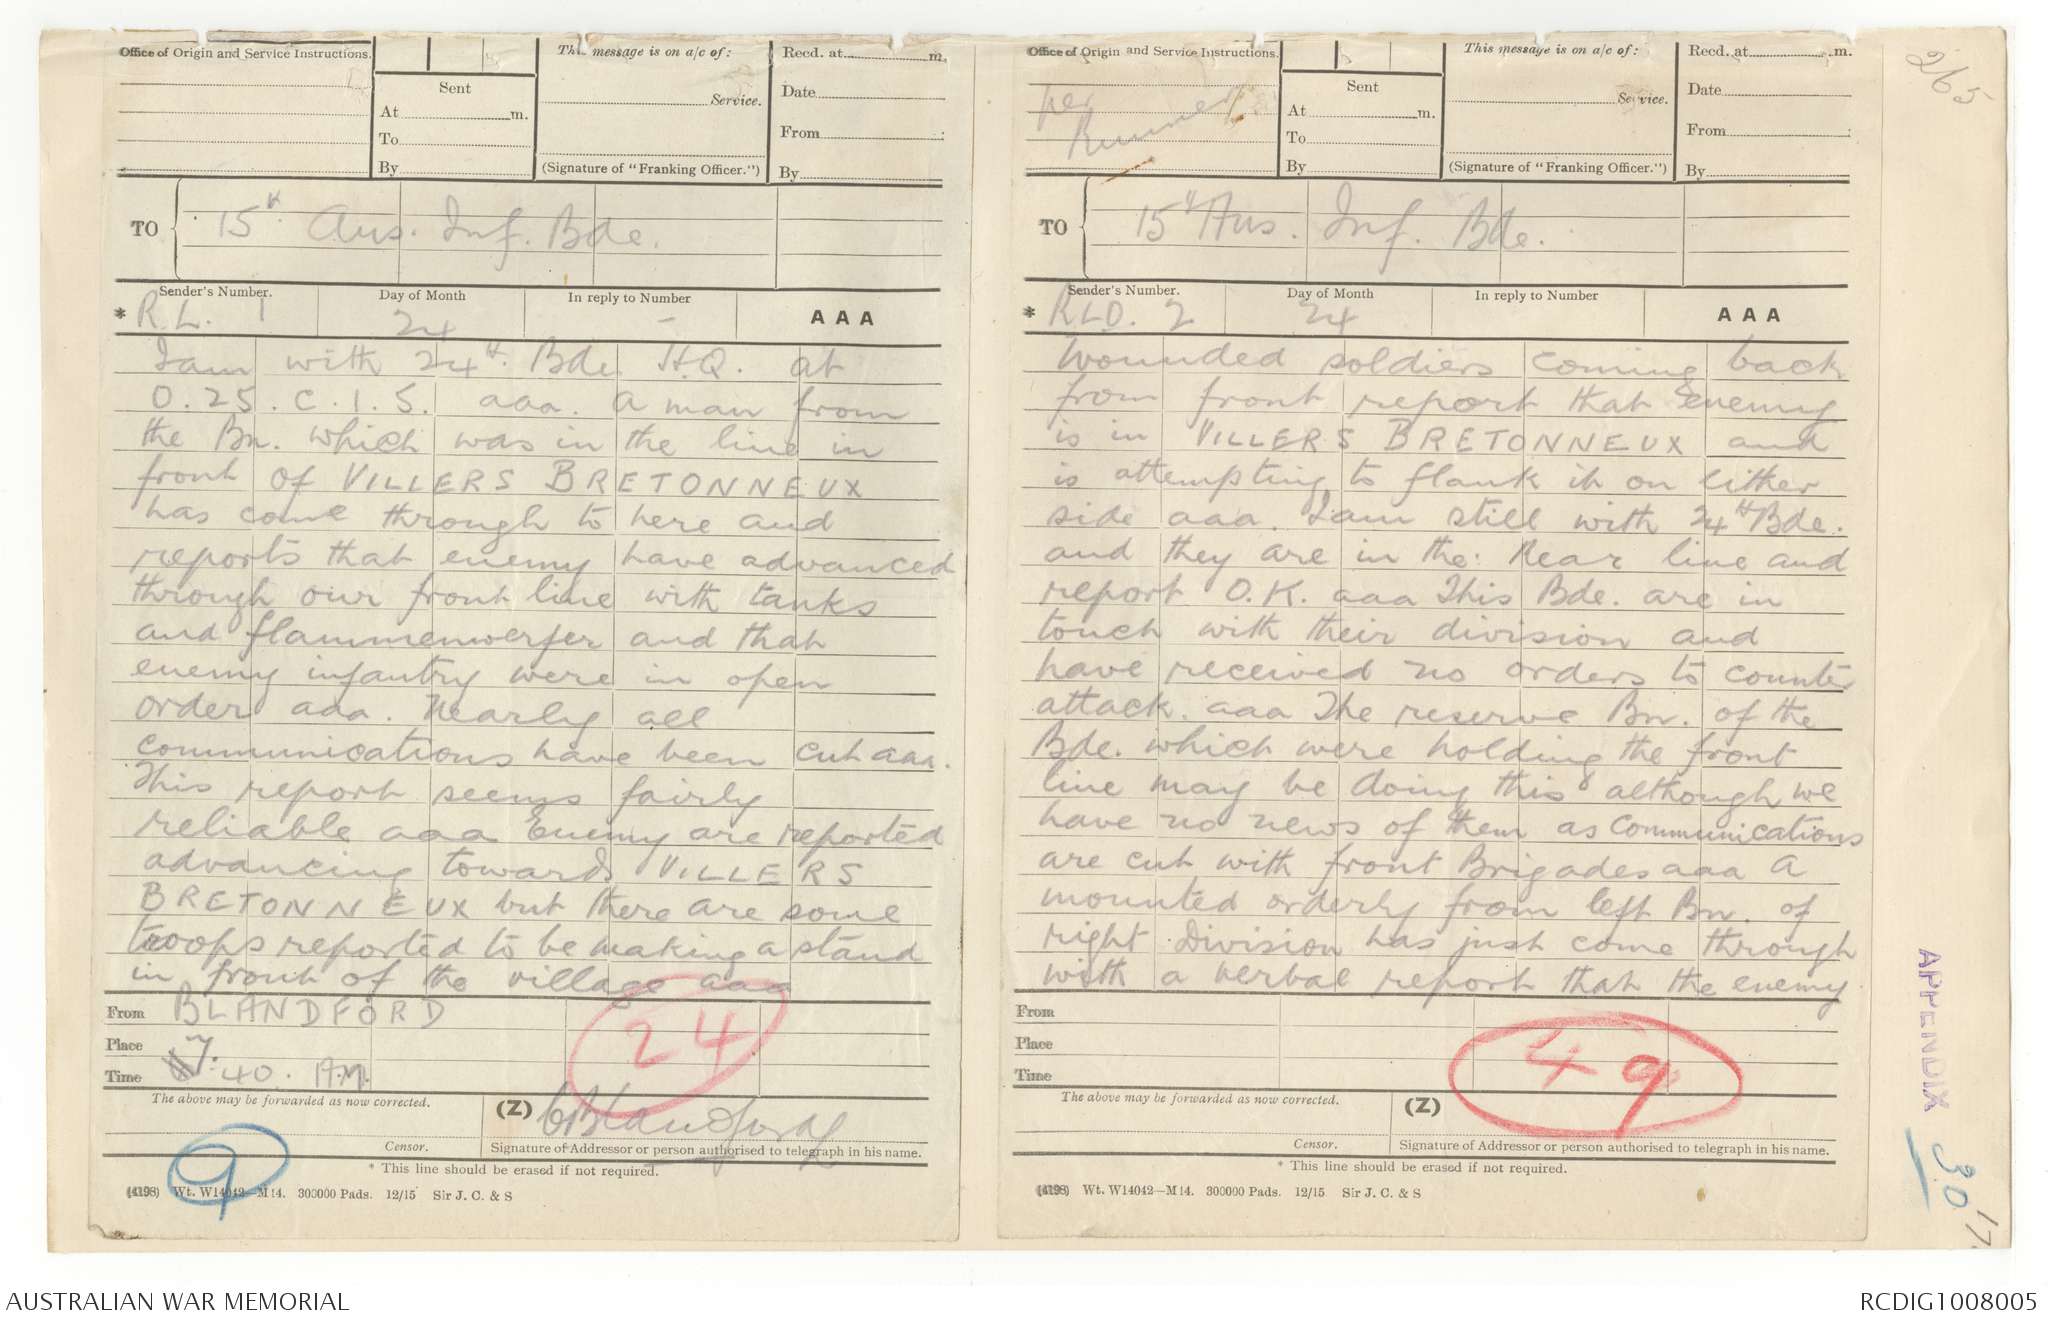 Office of Origin and Service Instructions.
This message is on a/c of:
Recd. at m.
Sent
Service.
Date
At m.
To
From
By
(Signature of "Franking Officer.")
By
TO
15th Aus. Inf. Bde.
Sender's Number.
Day of Month
In reply to Number
AAA
* R.L. 1
24
-
I am with 24th. Bde. H.Q. at
O.25.C.1.5. aaa. A man from
the Bn. which was in the line in
front of VILLERS BRETONNEUX
has come through to here and
reports that enemy have advanced
through our front line with tanks
and flammenwerfer and that
enemy infantry were in open
order aaa. Nearly all
communications have been cut aaa.
This report seems fairly
reliable aaa Enemy are reported
advancing towards VILLERS
BRETONNEUX but there are some
troops reported to be making a stand
in front of the village aaa
From BLANDFORD
Place
Time 7.40. A.M.
24
The above may be forwarded as now corrected.
(Z)
Blandford
Censor.
Signature of Addressor or person authorised to telegraph in his name.
* This line should be erased if not required.
(4198) Wt. W14042—M14. 300000 Pads. 12/15 Sir J. C. & S
9
Office of Origin and Service Instructions.
This message is on a/c of:
Recd. at m.
per
Runner
Sent
Service.
Date
At m.
To
From
By
(Signature of "Franking Officer.")
By
TO
15th Aus. Inf. Bde.
Sender's Number.
Day of Month
In reply to Number
AAA
* RLD. 2
24
Wounded soldiers coming back
from front report that enemy
is in VILLERS BRETONNEUX and
is attempting to flank it on either
side aaa. I am still with 24th Bde.
and they are in the Rear line and
report O.K. aaa This Bde. are in
touch with their division and
have received no orders to counter
attack. aaa The reserve Bn. of the
Bde. which were holding the front
line may be doing this although we
have no news of them as communications
are cut with front Brigades aaa A
mounted orderly from left Bn. of
right Division has just come through
with a verbal report that the enemy
From
Place
Time
49
The above may be forwarded as now corrected.
(Z)
Censor.
Signature of Addressor or person authorised to telegraph in his name.
* This line should be erased if not required.
(4198) Wt. W14042—M14. 300000 Pads. 12/15 Sir J. C. & S
265
APPENDIX
30
17.
AUSTRALIAN WAR MEMORIAL
RCDIG1008005